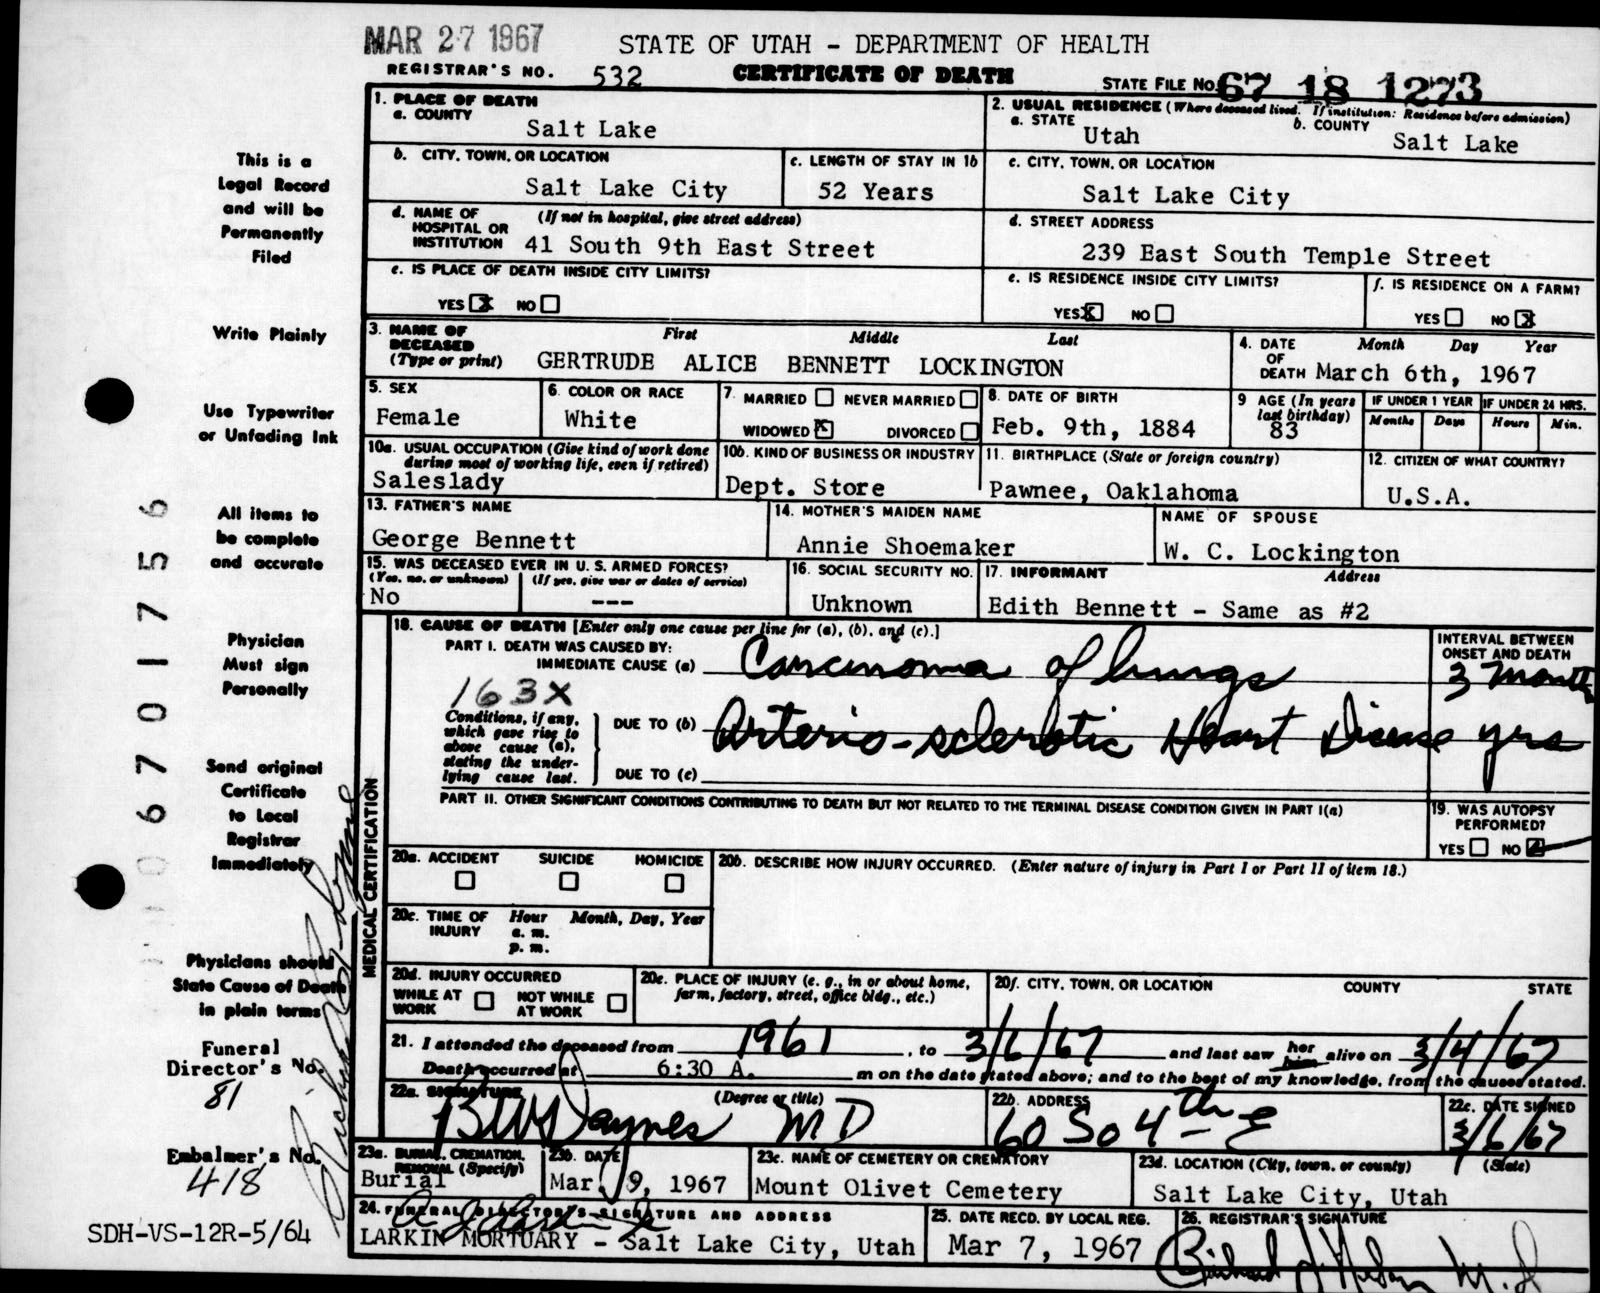 MAR 27 1967
STATE OF UTAH - DEPARTMENT OF HEALTH
REGISTRAR'S NO. 532
CERTIFICATE OF DEATH
STATE FILE NO. 67 18 1273
1. PLACE OF DEATH
a. COUNTY
Salt Lake
2. USUAL RESIDENCE (Where deceased lived. If institution: Residence before admission)
a. STATE
Utah
b. COUNTY
Salt Lake
b. CITY, TOWN, OR LOCATION
Salt Lake City
c. LENGTH OF STAY IN 1b
52 Years
c. CITY, TOWN, OR LOCATION
Salt Lake City
d. NAME OF HOSPITAL OR INSTITUTION
(If not in hospital, give street address)
41 South 9th East Street
d. STREET ADDRESS
239 East South Temple Street
e. IS PLACE OF DEATH INSIDE CITY LIMITS?
YES X NO
e. IS RESIDENCE INSIDE CITY LIMITS?
YES X NO
f. IS RESIDENCE ON A FARM?
YES NO X
3. NAME OF DECEASED
(Type or print)
First Middle Last
GERTRUDE ALICE BENNETT LOCKINGTON
4. DATE OF DEATH
Month Day Year
March 6th, 1967
5. SEX
Female
6. COLOR OR RACE
White
7. MARRIED NEVER MARRIED
WIDOWED X DIVORCED
8. DATE OF BIRTH
Feb. 9th, 1884
9 AGE (In years last birthday)
83
IF UNDER 1 YEAR
Months Days
IF UNDER 24 HRS.
Hours Min.
10a. USUAL OCCUPATION (Give kind of work done during most of working life, even if retired)
Saleslady
10b. KIND OF BUSINESS OR INDUSTRY
Dept. Store
11. BIRTHPLACE (State or foreign country)
Pawnee, Oaklahoma
12. CITIZEN OF WHAT COUNTRY?
U.S.A.
13. FATHER'S NAME
George Bennett
14. MOTHER'S MAIDEN NAME
Annie Shoemaker
NAME OF SPOUSE
W. C. Lockington
15. WAS DECEASED EVER IN U. S. ARMED FORCES?
(Yes, no, or unknown) (If yes, give war or dates of service)
No ---
16. SOCIAL SECURITY NO.
Unknown
17. INFORMANT Address
Edith Bennett - Same as #2
MEDICAL CERTIFICATION
18. CAUSE OF DEATH [Enter only one cause per line for (a), (b), and (c).]
PART I. DEATH WAS CAUSED BY:
IMMEDIATE CAUSE (a) Carcinoma of lungs
INTERVAL BETWEEN ONSET AND DEATH
3 months
163X
Conditions, if any, which gave rise to above cause (a), stating the underlying cause last.
DUE TO (b) Arterio-sclerotic Heart Disease yrs
DUE TO (c)
PART II. OTHER SIGNIFICANT CONDITIONS CONTRIBUTING TO DEATH BUT NOT RELATED TO THE TERMINAL DISEASE CONDITION GIVEN IN PART I(a)
19. WAS AUTOPSY PERFORMED?
YES NO
20a. ACCIDENT SUICIDE HOMICIDE
20b. DESCRIBE HOW INJURY OCCURRED. (Enter nature of injury in Part I or Part II of item 18.)
20c. TIME OF INJURY
Hour Month, Day, Year
a. m.
p. m.
20d. INJURY OCCURRED
WHILE AT WORK NOT WHILE AT WORK
20e. PLACE OF INJURY (e. g., in or about home, farm, factory, street, office bldg., etc.)
20f. CITY, TOWN, OR LOCATION COUNTY STATE
21. I attended the deceased from 1961, to 3/6/67 and last saw her him alive on 3/4/67
Death occurred at 6:30 A. m on the date stated above; and to the best of my knowledge, from the causes stated.
22a. SIGNATURE (Degree or title)
BW Daynes MD
22b. ADDRESS
60 So 4th E
22c. DATE SIGNED
3/6/67
23a. BURIAL, CREMATION, REMOVAL (Specify)
Burial
23b. DATE
Mar. 9, 1967
23c. NAME OF CEMETERY OR CREMATORY
Mount Olivet Cemetery
23d. LOCATION (City, town, or county) (State)
Salt Lake City, Utah
24. FUNERAL DIRECTOR'S SIGNATURE AND ADDRESS
LARKIN MORTUARY - Salt Lake City, Utah
25. DATE RECD. BY LOCAL REG.
Mar 7, 1967
26. REGISTRAR'S SIGNATURE
Richard J. Nelson M.D
This is a
Legal Record
and will be
Permanently
Filed
Write Plainly
Use Typewriter
or Unfading Ink
All items to
be complete
and accurate
Physician
Must sign
Personally
Send original
Certificate
to Local
Registrar
Immediately
Physicians should
State Cause of Death
in plain terms
Funeral
Director's No.
81
Embalmer's No.
418
SDH-VS-12R-5/64
06701756